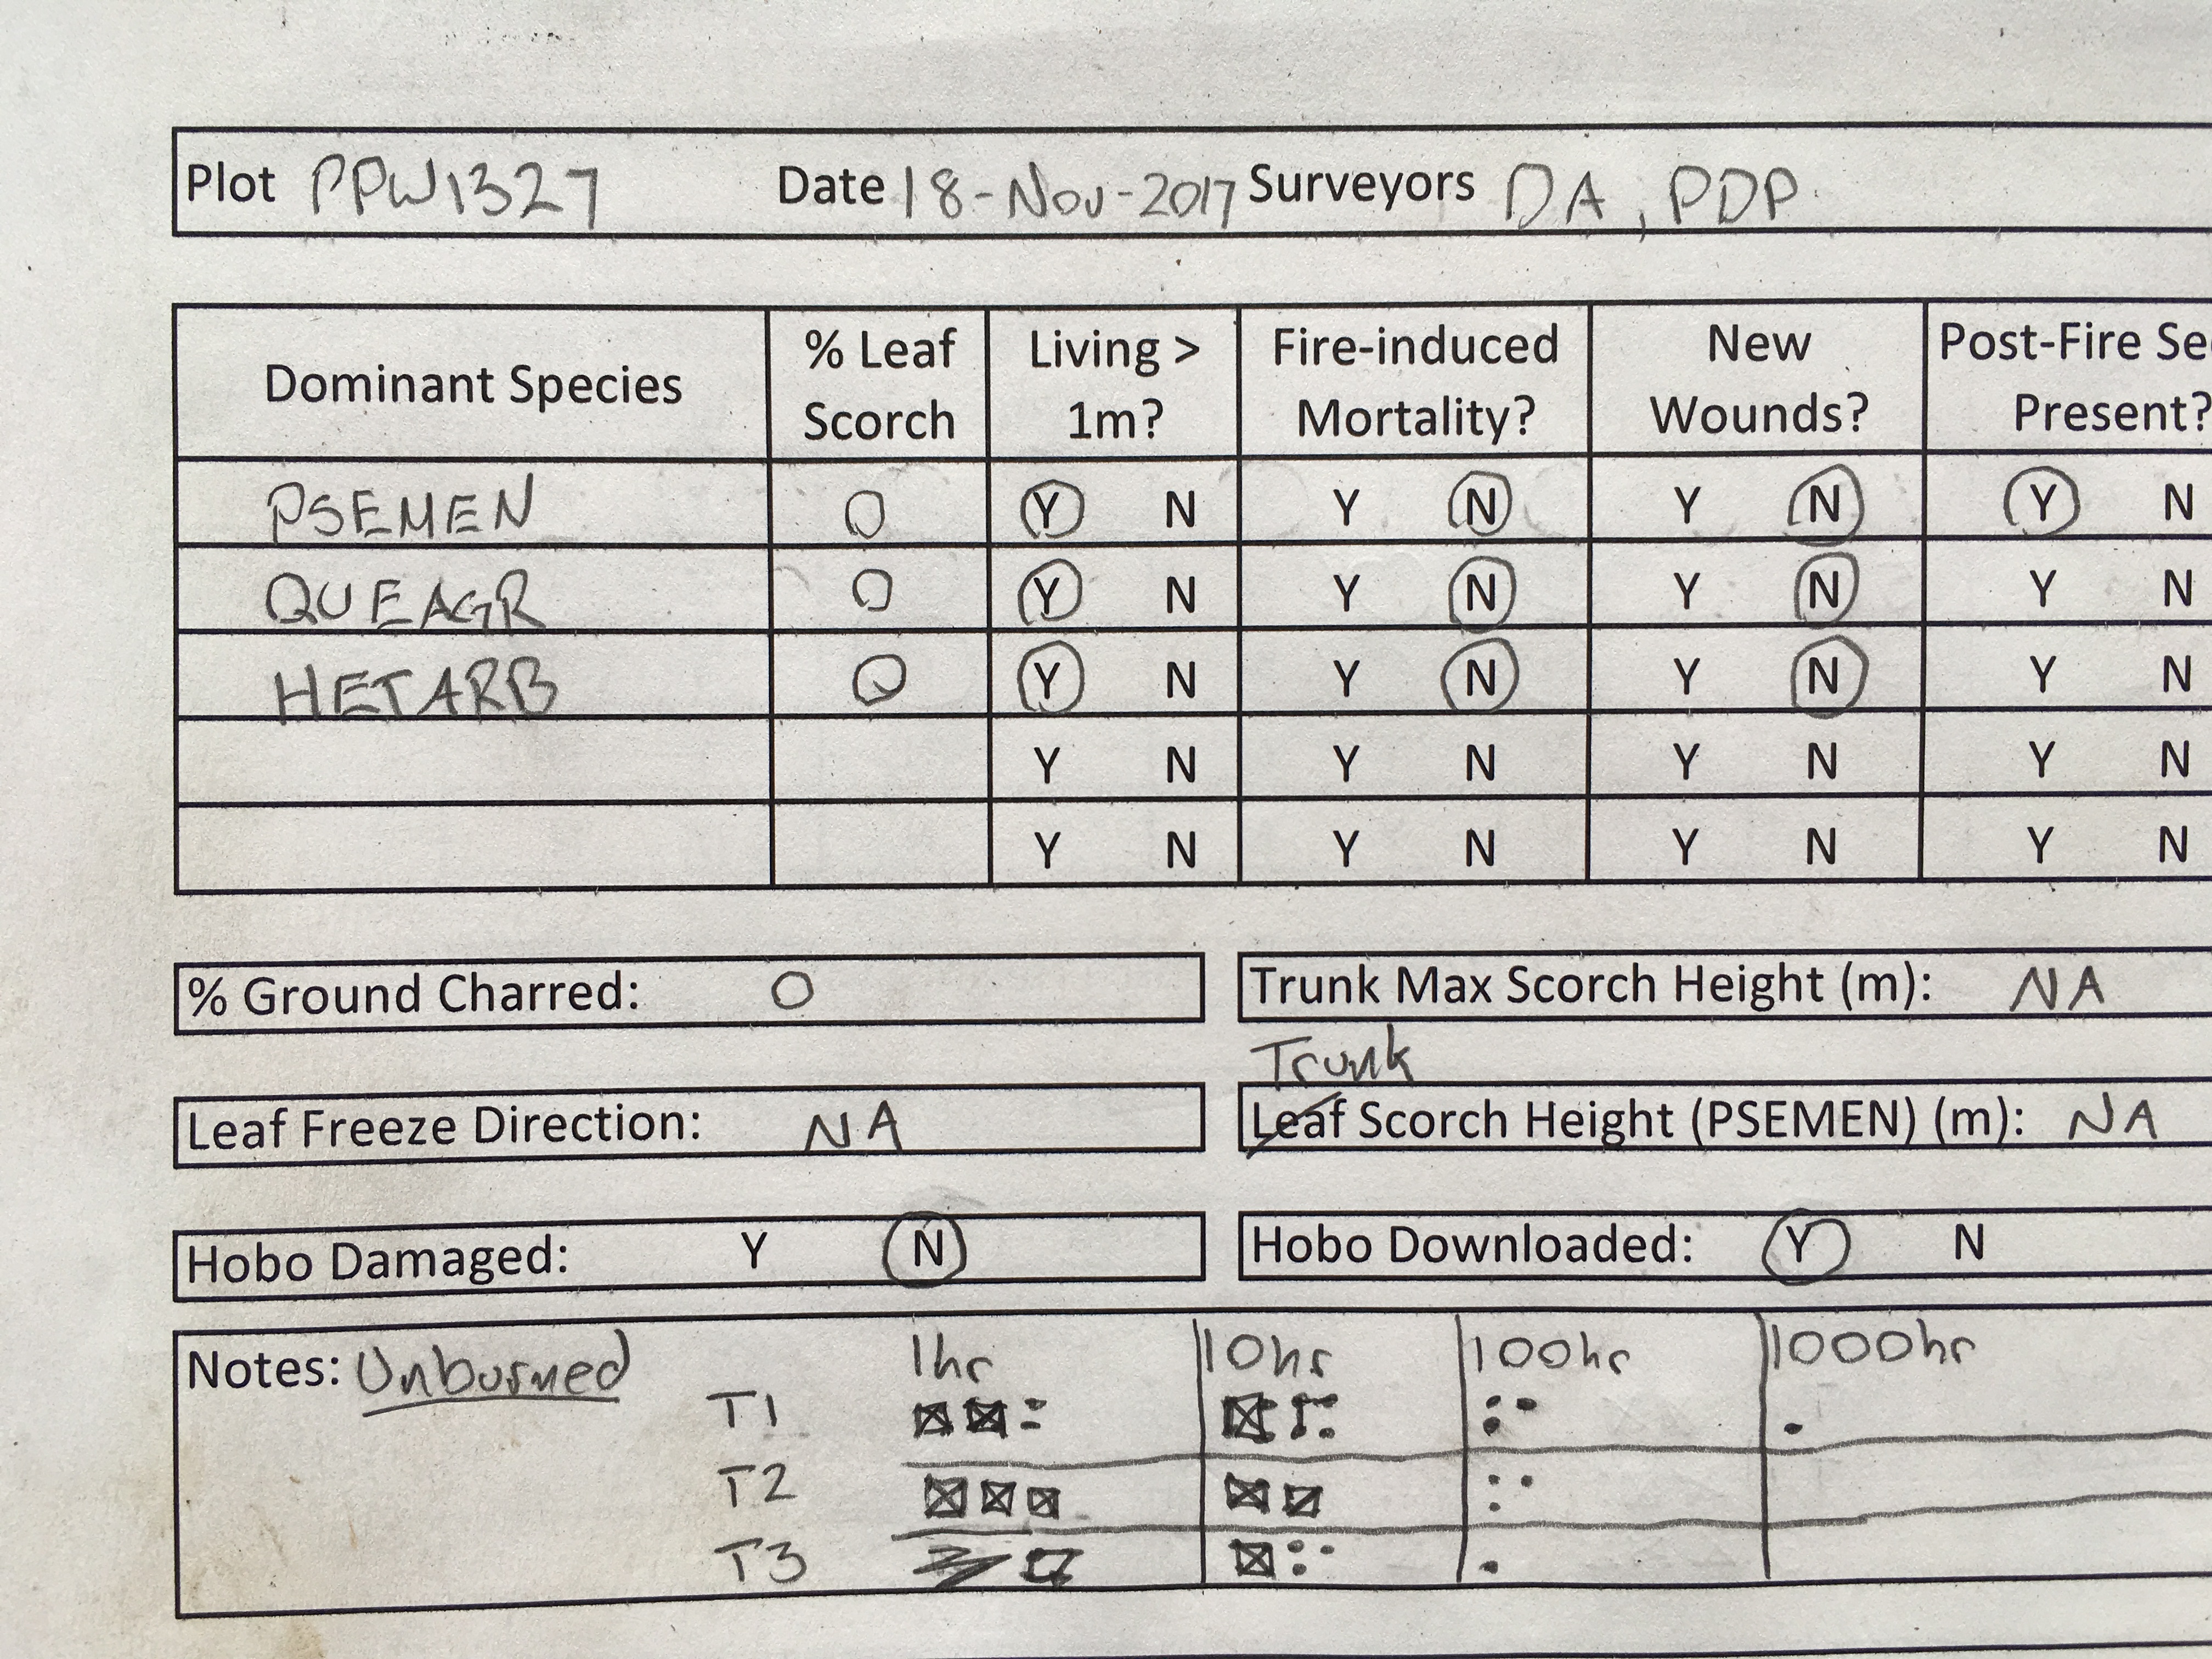 Plot PPW1327 Date 18-Nov-2017 Surveyors DA, PDP
Dominant Species % Leaf Scorch Living > 1m? Fire-induced Mortality? New Wounds? Post-Fire Se Present?
PSEMEN 0 Y N Y N Y N Y N
QUEAGR 0 Y N Y N Y N Y N
HETARB 0 Y N Y N Y N Y N
Y N Y N Y N Y N
Y N Y N Y N Y N
% Ground Charred: 0 Trunk Max Scorch Height (m): NA
Trunk
Leaf Freeze Direction: NA Leaf Scorch Height (PSEMEN) (m): NA
Hobo Damaged: Y N Hobo Downloaded: Y N
Notes: Unburned 1hr 10hr 100hr 1000hr
T1
T2
T3